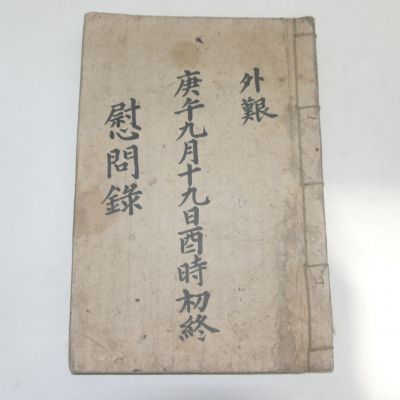 外艱
庚午九月十九日酉時初終
慰問錄